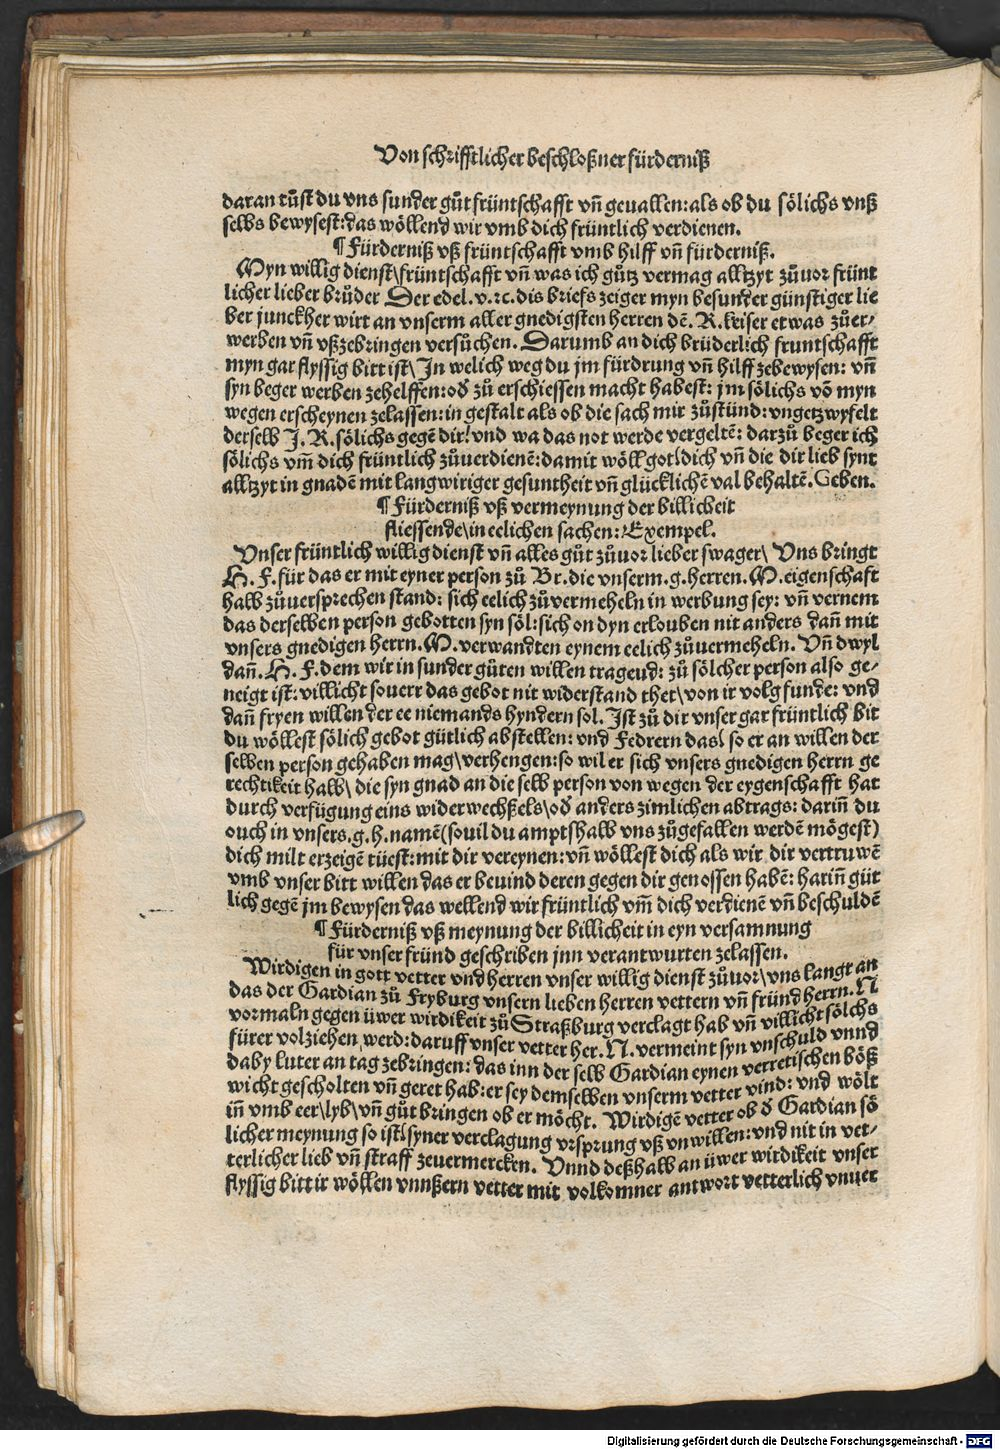 Von schrifftlicher beschloßner fürderniß
daran tůst du vns sunder gůt früntschafft vñ geuallen: als ob du sölichs vnß
selbs bewysest: das wöllend wir vmb dich früntlich verdienen.
¶ Fürderniß vß früntschafft vmb hilff vñ fürderniß.
Myn willig dienst\ früntschafft vñ was ich gůtz vermag alltzyt zůuor frünt
licher lieber brůder Der edel. v. ꝛc. dis briefs zeiger myn besunder günstiger lie
ber junckher wirt an vnserm aller gnedigsten herren dē. R. keiser etwas zůer⸗
werben vñ vßzebringen versůchen. Darumb an dich brüderlich fruntschafft
myn gar flyssig bitt ist\ In welich weg du jm fürdrung vñ hilff zebewysen: vñ
syn beger werben zehelffen: oď zů erschiessen macht habest: jm sölichs vō myn
wegen erscheynen zelassen: in gestalt als ob die sach mir zůstünd: vngetzwyfelt
derselb J. R. sölichs gegē dir/ vnd wa das not werde vergeltē: darzů beger ich
sölichs vm̄ dich früntlich zůuerdienē: damit wöll got/ dich vñ die dir lieb synt
alltzyt in gnadē mit langwiriger gesuntheit vñ glücklichē val behaltē. Geben.
¶ Fürderniß vß vermeynung der billicheit
fliessende\ in eelichen sachen: Exempel.
Vnser früntlich willig dienst vñ alles gůt zůuor lieber swager\ Vns bringt
H. F. für das er mit eyner person zů Br. die vnserm. g. herren. M. eigenschaft
halb zůuersprechen stand: sich eelich zůvermeheln in werbung sey: vñ vernem
das derselben person gebotten syn söl: sich on dyn erlouben nit anders dañ mit
vnsers gnedigen herrn. M. verwandten eynem eelich zůuermeheln. Vñ dwyl
dañ. H. F. dem wir in sunder gůten willen tragend: zů sölcher person also ge⸗
neigt ist: villicht souerr das gebot nit widerstand thet\ von ir volg funde: vnd
dañ fryen willen der ee niemands hyndern sol. Ist zů dir vnser gar früntlich bit
du wöllest sölich gebot gütlich abstellen: vnd Fedrern das/ so er an willen der
selben person gehaben mag\ verhengen: so wil er sich vnsers gnedigen herrn ge
rechtikeit halb\ die syn gnad an die selb person von wegen der eygenschafft hat
durch verfügung eins widerwechßels\ oď anders zimlichen abtrags: dariñ du
ouch in vnsers. g. h. namē (souil du amptshalb vns zůgefallen werdē mögest)
dich milt erzeigē tüest: mit dir vereynen: vñ wöllest dich als wir dir vertruwē
vmb vnser bitt willen das er beuind deren gegen dir genossen habē: hariñ güt
lich gegē jm bewysen das wellend wir früntlich vm̄ dich verdienē vñ beschuldē
¶ Fürderniß vß meynung der billicheit in eyn versamnung
für vnser fründ geschriben jnn verantwurten zelassen.
Wirdigen in gott vetter vnd herren vnser willig dienst zůuor\ vns langt an
das der Gardian zů Fryburg vnsern lieben herren vettern vñ fründ herrn. N
vormaln gegen üwer wirdikeit zů Straßburg verclagt hab vñ villicht sölchs
fürer volziehen werd: daruff vnser vetter her. N. vermeint syn vnschuld vnnd
daby luter an tag zebringen: das inn der selb Gardian eynen verretischen böß
wicht gescholten vñ geret hab: er sey demselben vnserm vetter vind: vnd wölt
iñ vmb eer\ lyb\ vñ gůt bringen ob er möcht. Wirdigē vetter ob ď Gardian sö
licher meynung so ist/ syner verclagung vrsprung vß vnwillen: vnd nit in vet⸗
terlicher lieb vñ straff zeuermercken. Vnnd deßhalb an üwer wirdikeit vnser
flyssig bitt ir wöllen vnnßern vetter mit volkomner antwort vetterlich vnuer
Digitalisierung gefördert durch die Deutsche Forschungsgemeinschaft - DFG